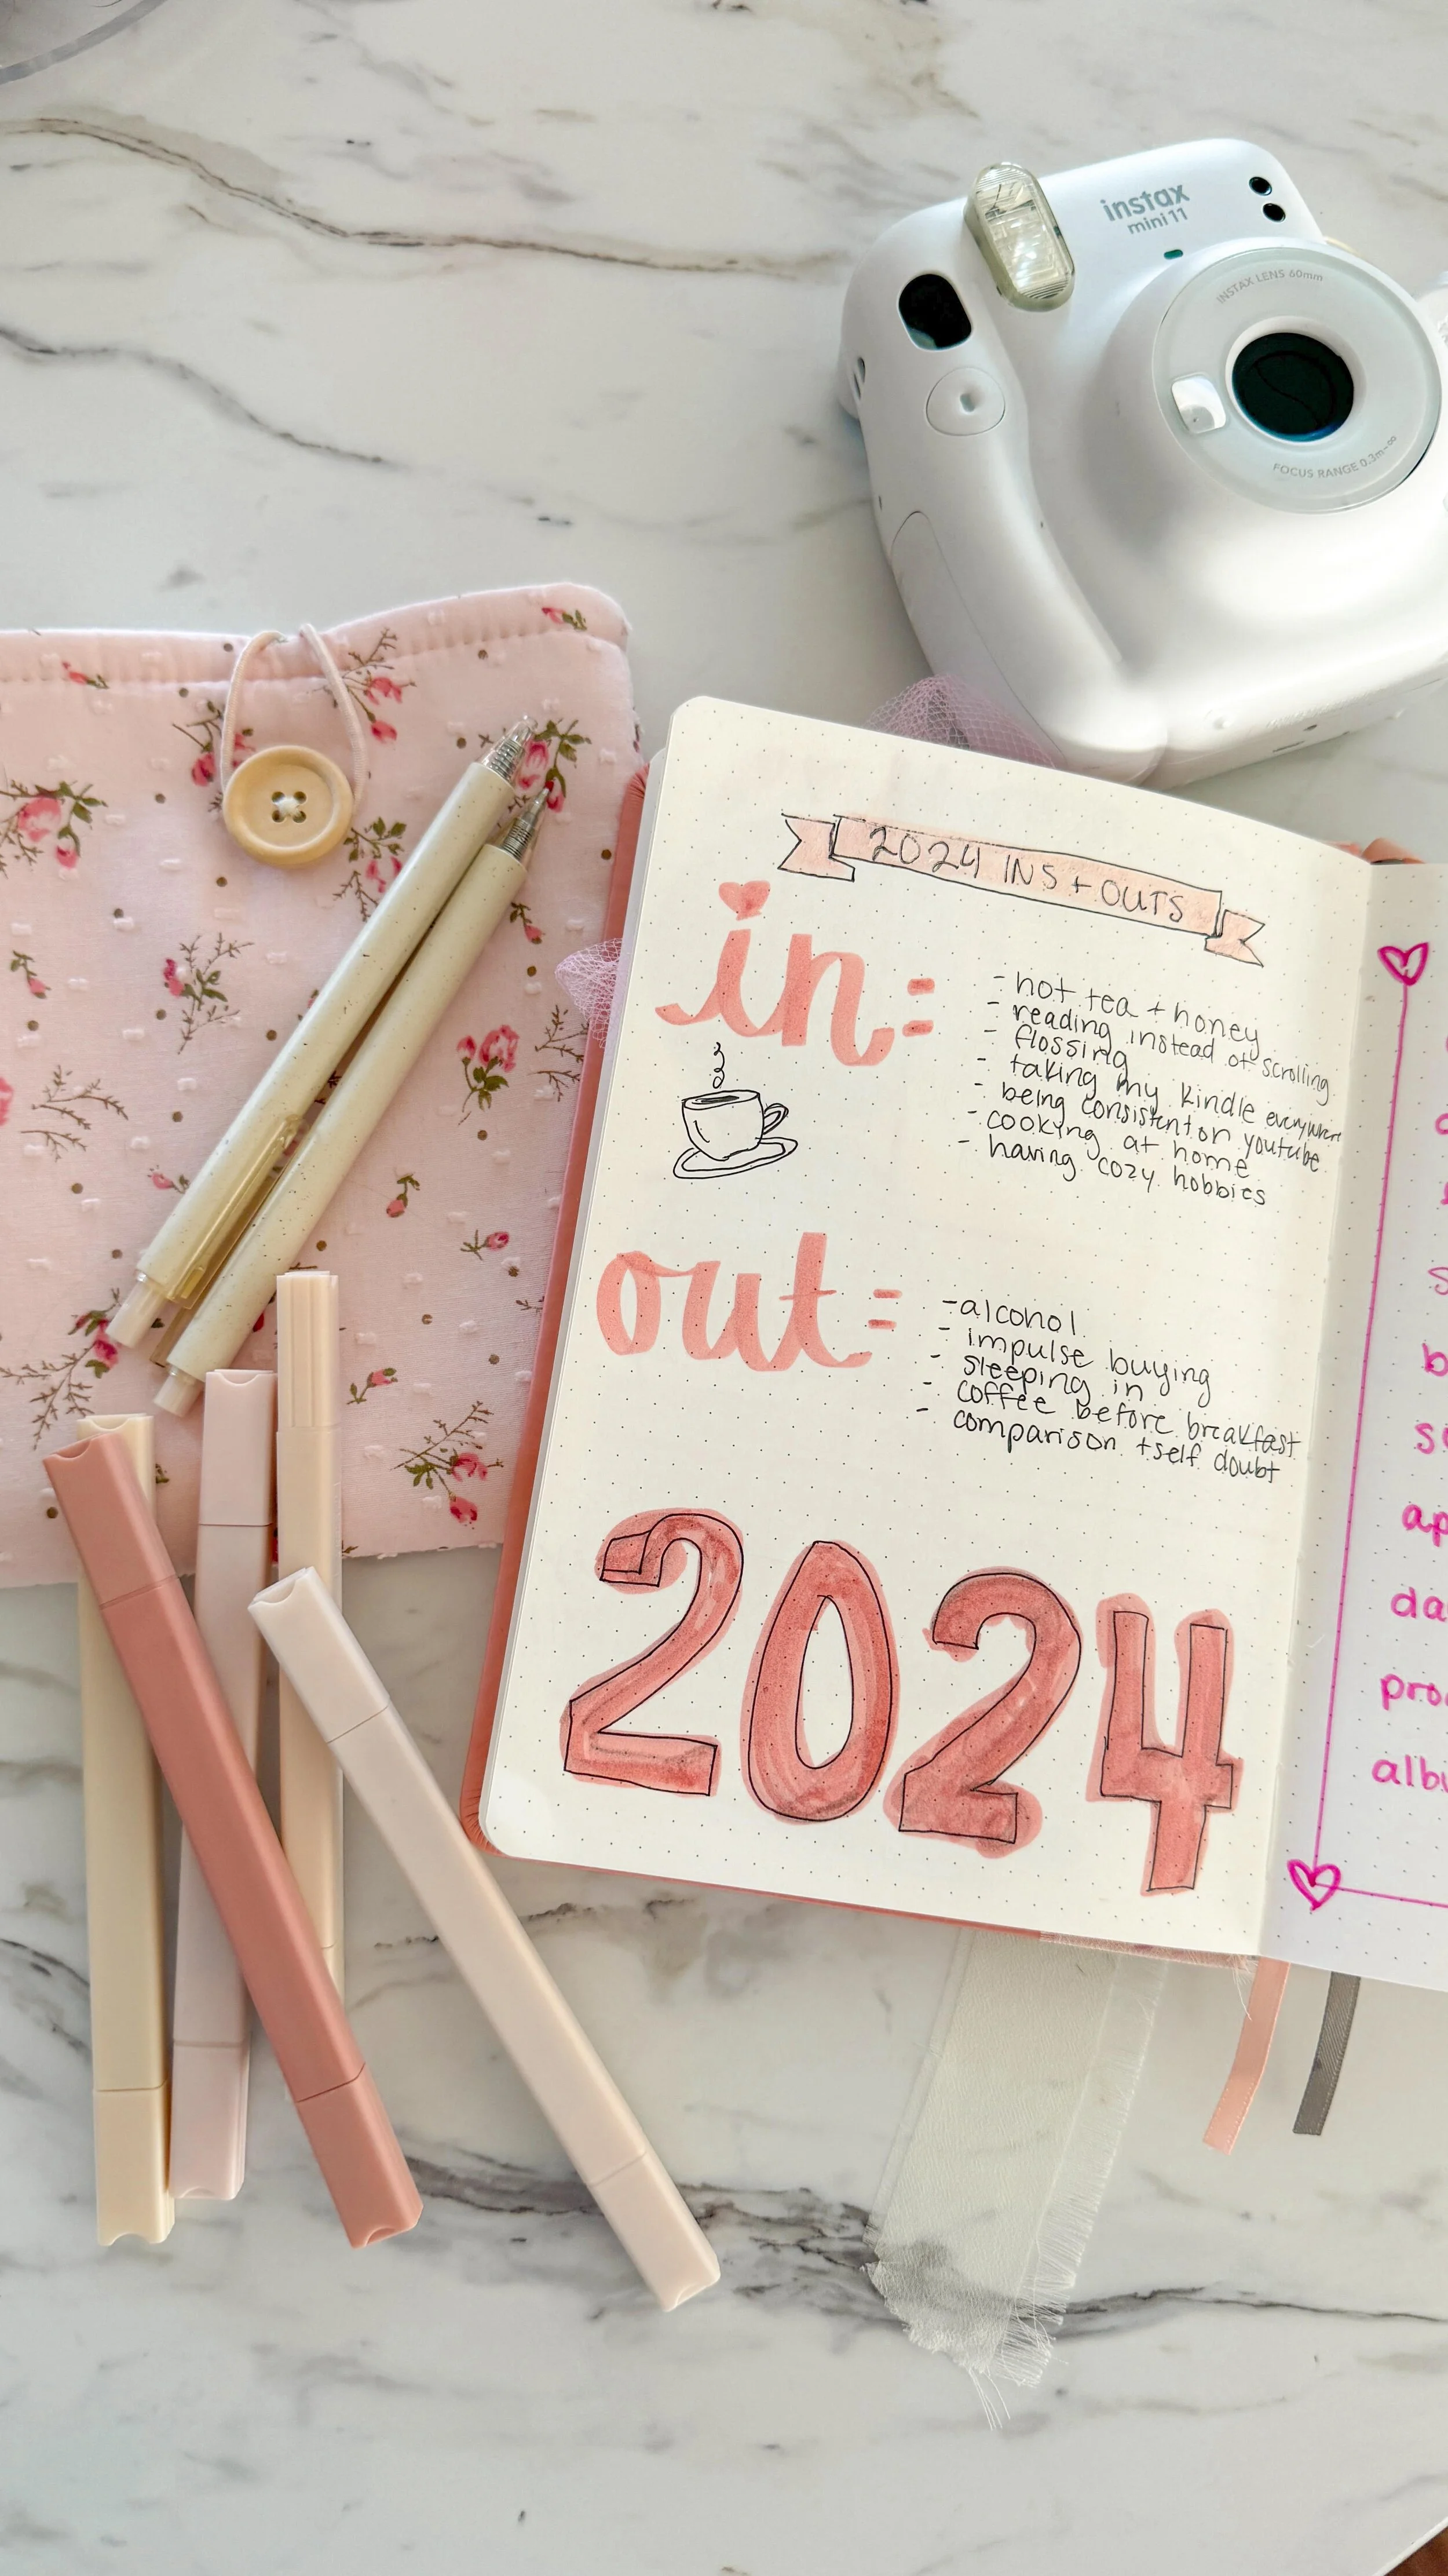 instax
mini 11
INSTAX LENS 60mm
FOCUS RANGE 0.3m-∞
2024 INS + OUTS
in=
- hot tea + honey
- reading instead of scrolling
- flossing
- taking my kindle everywhere
- being consistent on youtube
- cooking at home
- having cozy hobbies
out=
- alcohol
- impulse buying
- sleeping in
- coffee before breakfast
- comparison + self doubt
2024